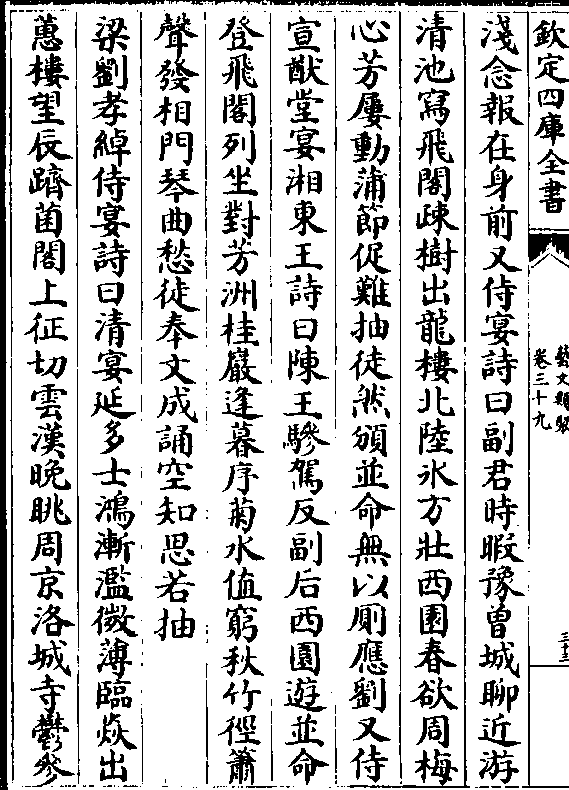 欽定四庫全書
藝文類聚
卷三十九
三十三
淺念報在身前又侍宴詩曰副君時暇豫曾城聊近游
清池寫飛閣疎樹出龍樓北陸氷方壯西園春欲周梅
心芳屢動蒲節促難抽徒然頒並命無以厠應劉又侍
宣猷堂宴湘東王詩曰陳王驂駕反副后西園遊並命
登飛閣列坐對芳洲桂巖逢暮序菊水值窮秋竹徑簫
聲發相門琴曲愁徒奉文成誦空知思若抽
梁劉孝綽侍宴詩曰清宴延多士鴻漸濫微薄臨焱出
蕙樓望辰躋菌閣上征切雲漢晚眺周京洛城寺鬱參